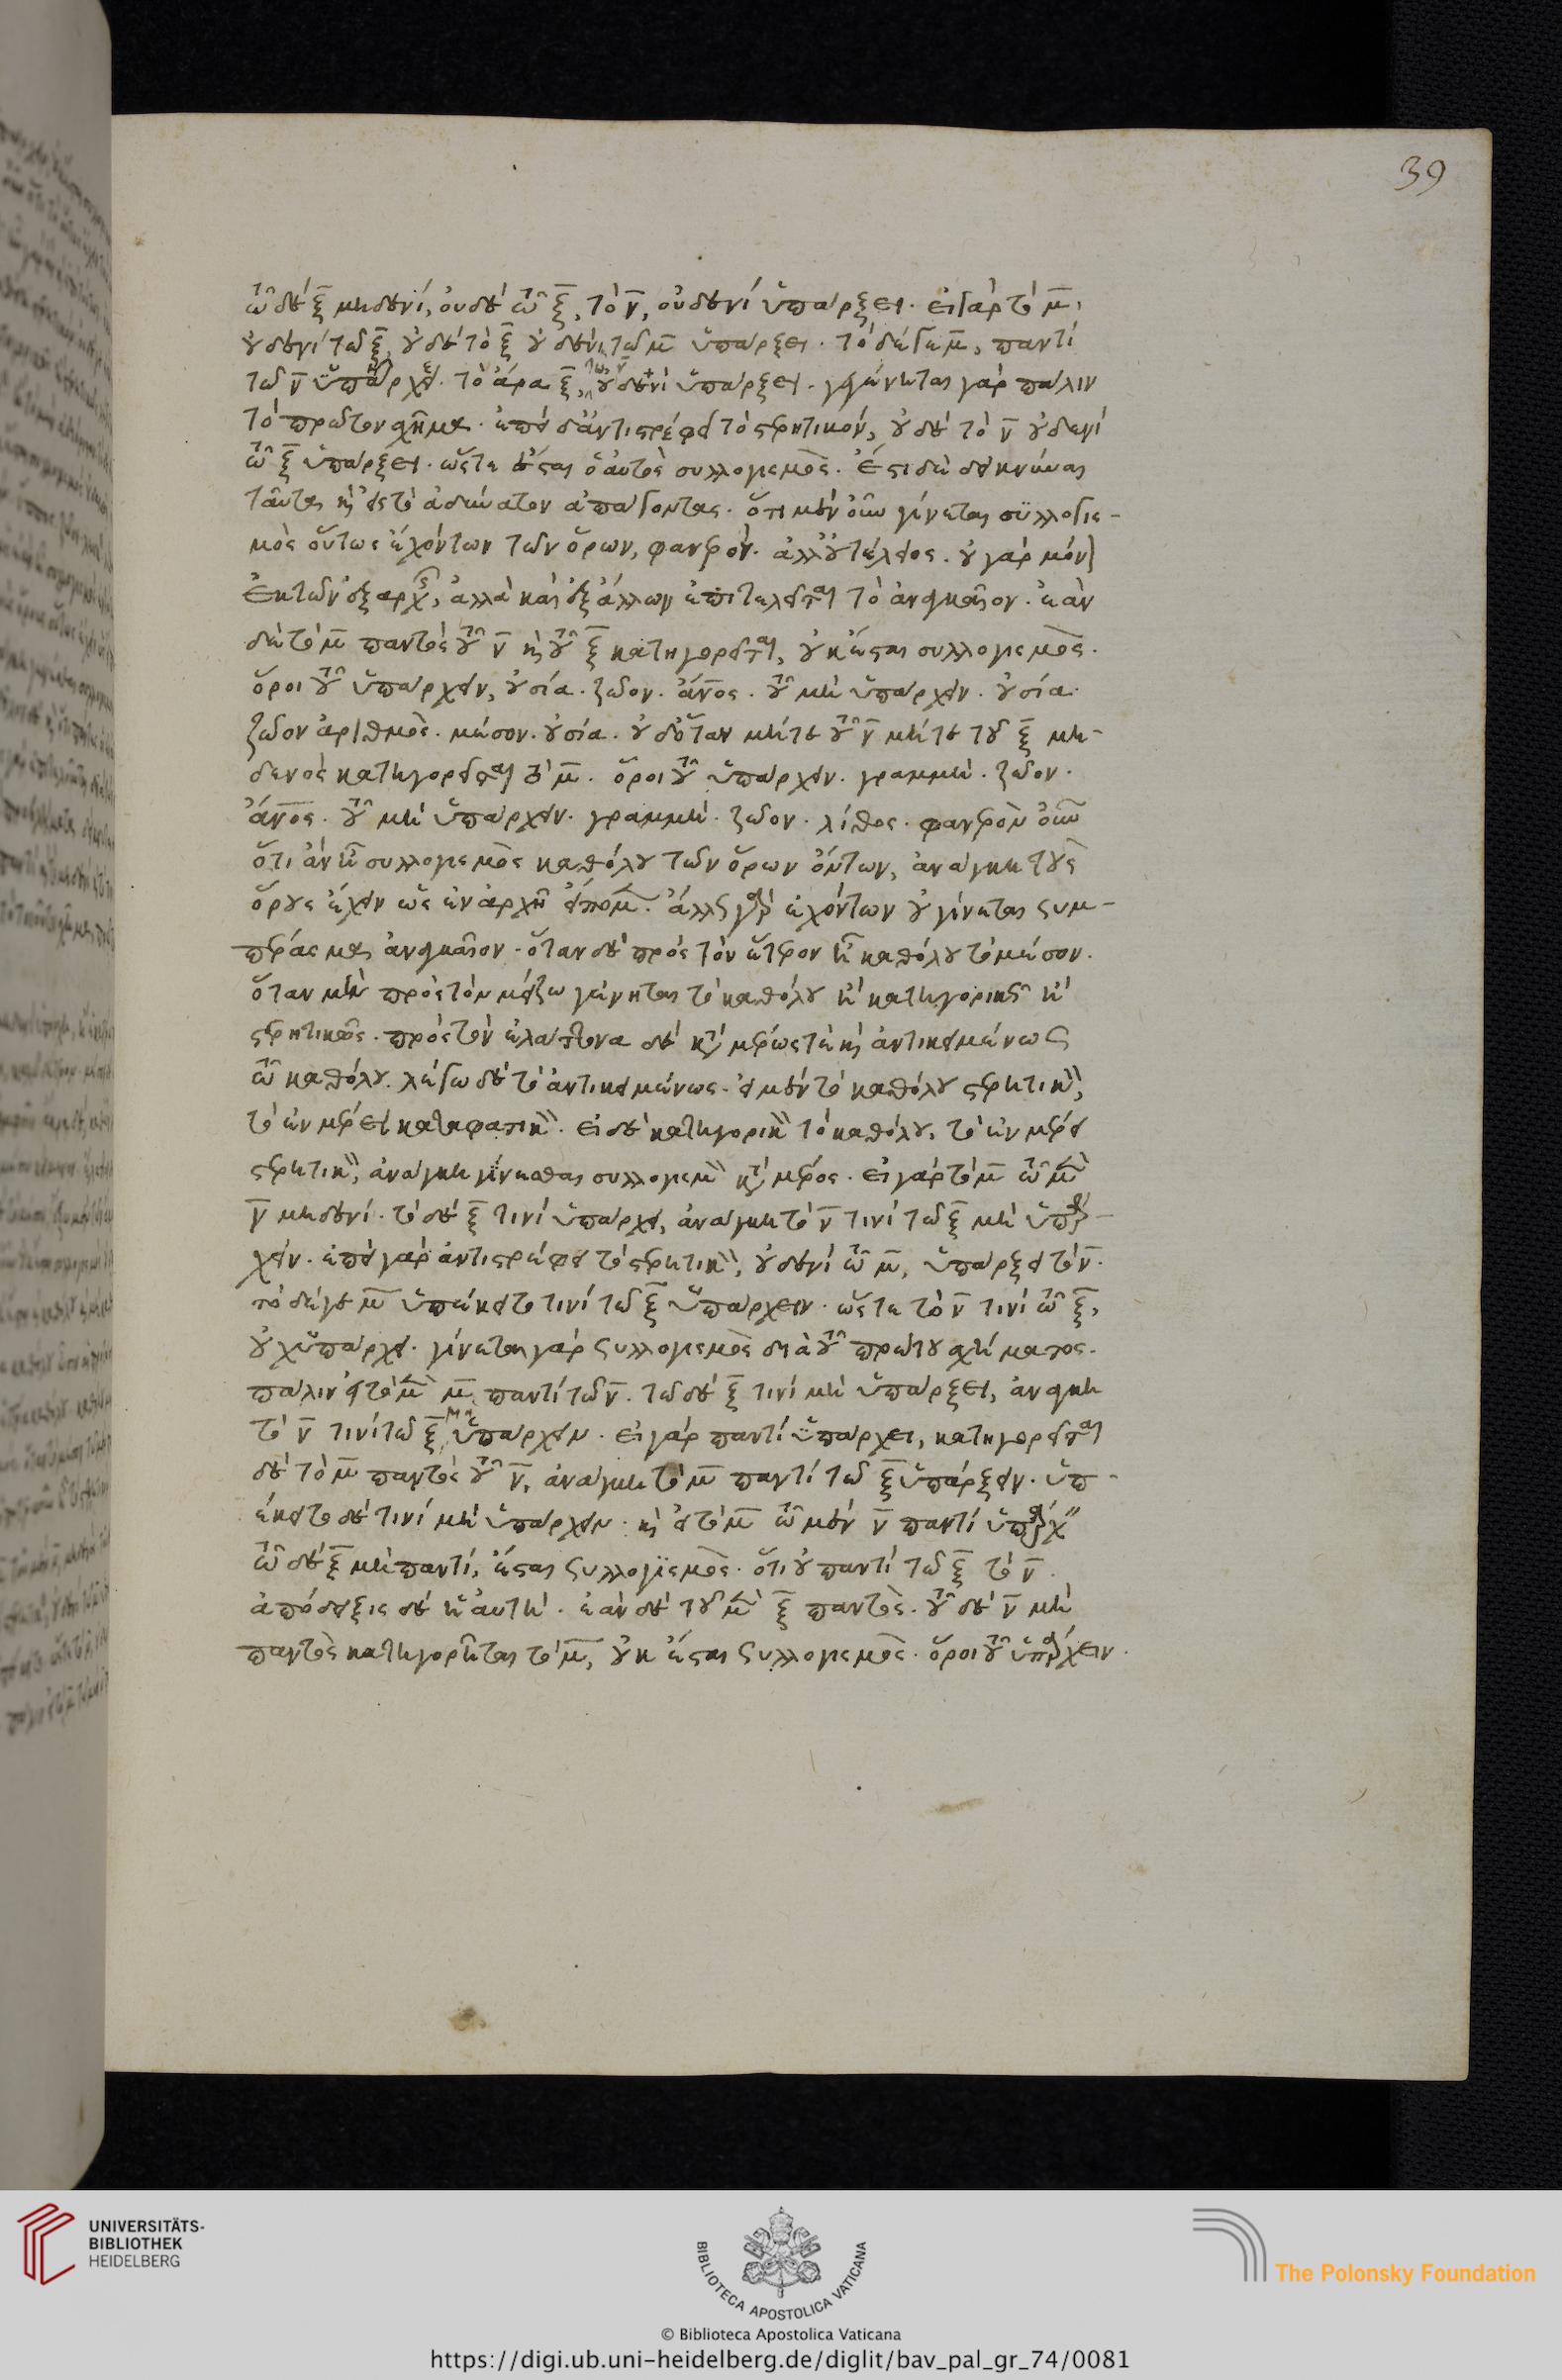 39
τῶ δὲ ξ̅ μηδενί, οὐδὲ τῶ ξ̅, τὸ ν̅, οὐδενὶ ὑπάρξει. εἰ γὰρ τὸ μ̅,
οὐδενὶ τῶ ξ̅, οὐδὲ τὸ ξ̅ οὐδενὶ τῶ μ̅ ὑπάρξει. τὸ δέ γε μ̅, παντὶ
τῶ ν̅ ὑπάρχει. τὸ ἄρα ξ̅, τῶ ν̅ οὐδενὶ ὑπάρξει. γεγένηται γὰρ πάλιν
τὸ πρῶτον σχῆμα. ἐπεὶ δ' ἀντιστρέφει τὸ στερητικόν, οὐδὲ τὸ ν̅ οὐδενὶ
τῶ ξ̅ ὑπάρξει. ὥστε ἔσται ὁ αὐτὸς συλλογισμὸς. ἔστι δὲ δεικνύναι
ταῦτα κὶ εἰς τὸ ἀδύνατον ἀπάγοντας. ὅτι μὲν οὖν γίνεται συλλογισ-
μὸς οὕτως ἐχόντων τῶν ὅρων, φανερὸν. ἀλλ' οὐ τέλειος. οὐ γὰρ μόν
ἐκ τῶν ἐξ ἀρχῆς, ἀλλὰ καὶ ἐξ ἄλλων ἐπιτελεῖται τὸ ἀναγκαῖον. ἐὰν
δὲ τὸ μ̅ παντὸς τοῦ ν̅ κὶ τοῦ ξ̅ κατηγορεῖται, οὐκ ἔσται συλλογισμὸς.
ὅροι τοῦ ὑπάρχειν, οὐσία. ζῶον. ἄνος. τοῦ μὴ ὑπάρχειν. οὐσία.
ζῶον ἀριθμὸς. μέσον. οὐσία. οὐδ' ὅταν μήτε τοῦ ν̅ μήτε τοῦ ξ̅ μη-
δενὸς κατηγορεῖται τὸ μ̅. ὅροι τοῦ ὑπάρχειν. γραμμὴ. ζῶον.
ἄνος. τοῦ μὴ ὑπάρχειν. γραμμὴ. ζῶον. λίθος. φανερὸν οὖν
ὅτι ἂν ἦ συλλογισμὸς καθόλου τῶν ὅρων ὄντων, ἀνάγκη τοὺς
ὅρους ἔχειν ὡς ἐν ἀρχῆ εἴπομεν. ἄλλως γὰρ ἐχόντων οὐ γίνεται συμ-
πέρασμα ἀναγκαῖον. ὅταν δὲ πρὸς τὸν ἕτερον ἦ καθόλου τὸ μέσον.
ὅταν μὲν πρὸς τὸν μείζω γένηται τὸ καθόλου ἢ κατηγορικῶς ἢ
στερητικῶς. πρὸς τὸν ἐλάττονα δὲ κατὰ μέρος τὲ κὶ ἀντικειμένως
τῶ καθόλου. λέγω δὲ τὸ ἀντικειμένως. εἰ μὲν τὸ καθόλου στερητικὸν,
τὸ ἐν μέρει καταφατικὸν. εἰ δὲ κατηγορικὸν τὸ καθόλου, τὸ ἐν μέρει
στερητικὸν, ἀνάγκη γίνεσθαι συλλογισμὸν κατὰ μέρος. εἰ γὰρ τὸ μ̅ τῶ μὲν
ν̅ μηδενί. τὸ δὲ ξ̅ τινὶ ὑπάρχει, ἀνάγκη τὸ ν̅ τινὶ τῶ ξ̅ μὴ ὑπάρ-
χειν. ἐπεὶ γὰρ ἀντιστρέφει τὸ στερητικὸν, οὐδενὶ τῶ μ̅, ὑπάρξει τὸ ν̅.
τὸ δέγε μ̅ ὑπέκειτο τινὶ τῶ ξ̅ ὑπάρχειν. ὥστε τὸ ν̅ τινὶ τῶ ξ̅,
οὐχ ὑπάρχει. γίνεται γὰρ συλλογισμὸς διὰ τοῦ πρώτου σχήματος.
πάλιν εἰ τὸ μὲν μ̅ παντὶ τῶ ν̅. τῶ δὲ ξ̅ τινὶ μὴ ὑπάρξει, ἀνάγκη
τὸ ν̅ τινὶ τῶ ξ̅ μὴ ὑπάρχειν. εἰ γὰρ παντὶ ὑπάρχει, κατηγορεῖται
δὲ τὸ μ̅ παντὸς τοῦ ν̅, ἀνάγκη τὸ μ̅ παντὶ τῶ ξ̅ ὑπάρξειν. ὑπ-
έκειτο δὲ τινὶ μὴ ὑπάρχειν. κὶ εἰ τὸ μ̅ τῶ μὲν ν̅ παντὶ ὑπάρχει
τῶ δὲ ξ̅ μὴ παντί, ἔσται συλλογισμὸς. ὅτι οὐ παντὶ τῶ ξ̅ τὸ ν̅.
ἀπόδειξις δὲ ἡ αὐτὴ. ἐὰν δὲ τοῦ μὲν ξ̅ παντὸς. τοῦ δὲ ν̅ μὴ
παντὸς κατηγορῆται τὸ μ̅, οὐκ ἔσται συλλογισμὸς. ὅροι τοῦ ὑπάρχειν.
UNIVERSITÄTS-
BIBLIOTHEK
HEIDELBERG
BIBLIOTECA APOSTOLICA VATICANA
The Polonsky Foundation
© Biblioteca Apostolica Vaticana
https://digi.ub.uni-heidelberg.de/diglit/bav_pal_gr_74/0081